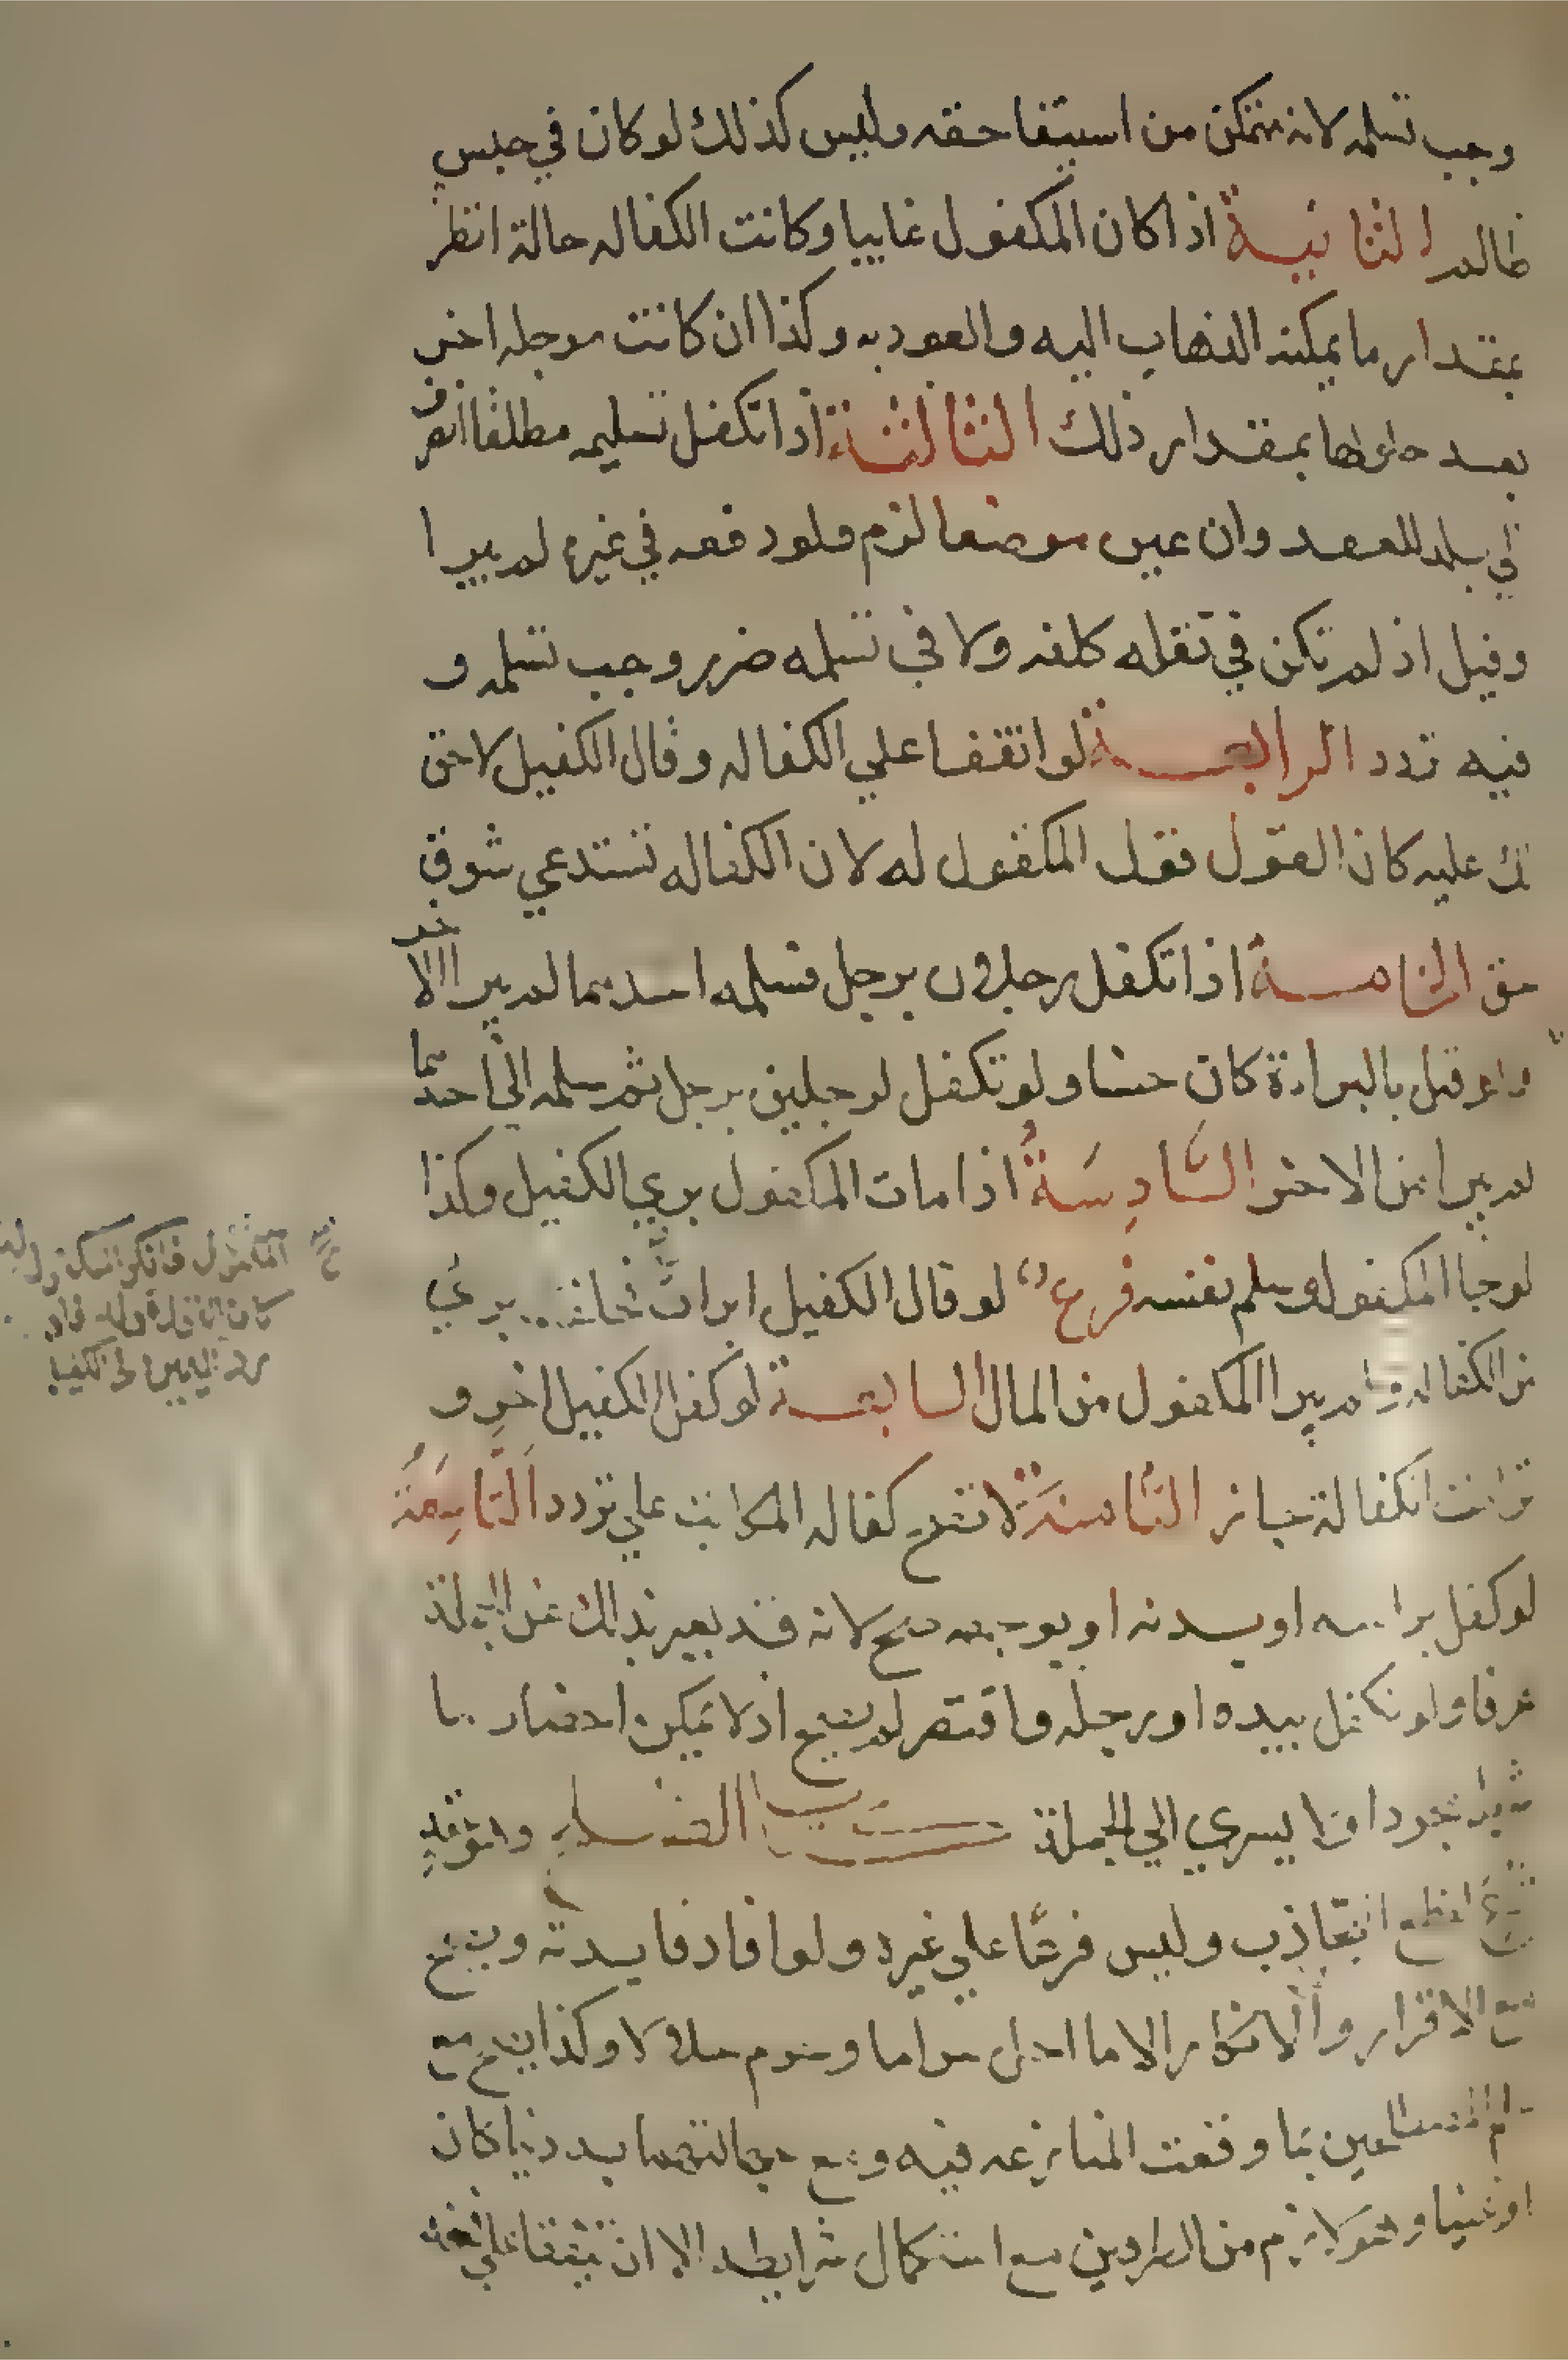 وجب تسلمه لانه متمكن من استيفا حقه وليس كذلك لو كان في حبس
ظالم الثانية اذا كان المكفول غايبا وكانت الكفاله حالة انظر
بمقدار ما يمكنه الذهاب اليه والعود به وكذا ان كانت موجله اخر
بعد حلولها بمقدار ذلك الثالثة اذا تكفل تسليمه مطلقا انصرف
الي بلد العقد وان عين موضعا لزم ولو دفعه في غيره لم يبرا
وقيل اذ لم تكن في نقله كلفه ولا في تسلمه ضرر وجب تسلمه و
فيه تردد الرابعة لو اتفقا علي الكفاله وقال الكفيل لا حق
لك عليه كان القول قول المكفول له لان الكفاله تستدعي ثبوت
حق الخامسة اذا تكفل رجلان برجل فسلمه احدهما لم يبرا الاخر
ولو قيل بالبراءة كان حسنا ولو تكفل لرجلين برجل ثم سلمه الي احدهما
لم يبرا من الاخر السَّادِسَةُ اذا مات المكفول بري الكفيل وكذا
لو جا المكفول وسلم نفسه فرع لو قال الكفيل ابرات المكفول فانكر المكفول له
كان القول قوله فلو رد اليمين الي الكفيل
فحلف بري
من الكفاله ولم يبرا المكفول من المال السابعة لو كفل الكفيل اخر و
ترامت الكفالة جاز الثامنة لا تصح كفاله المكاتب علي تردد التَّاسِعَةُ
لو كفل براسه او بدنه او بوجهه صح لانه قد يعبر بذلك عن الجملة
عرفا ولو تكفل بيده او رجله واقتصر لم يصح اذ لا يمكن احضار ما
شرط مجردا ولا يسري الي الجملة كتاب الصلح وهو عقد
شرع لقطع التجاذب وليس فرعًا علي غيره ولو افاد فايدته ويصح
مع الاقرار والانكار الا ما احل حراما او حرم حلالا وكذا يصح مع
علم المصطلحين بما وقعت المنازعه فيه ومع جهالتهما به دينا كان
او عينا وهو لازم من الطرفين مع استكمال شرايطه الا ان يتفقا علي فسخه